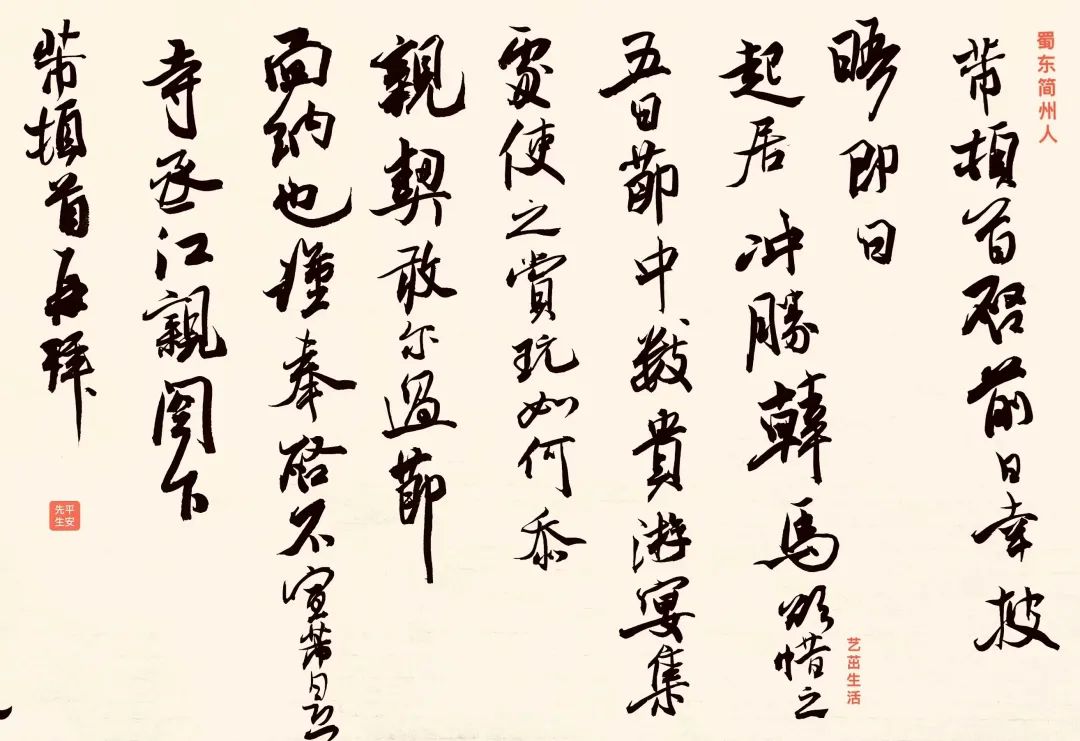 蜀东简州人
芾頓首啓前日幸披
晤即日
起居冲勝韓馬欲惜之
艺茁生活
五日節中數貴游宴集
處使之賞玩如何忝
親契敢尔過節
面納也謹奉啓不宣芾
寺丞江親閤下
芾頓首再拜
平安
先生